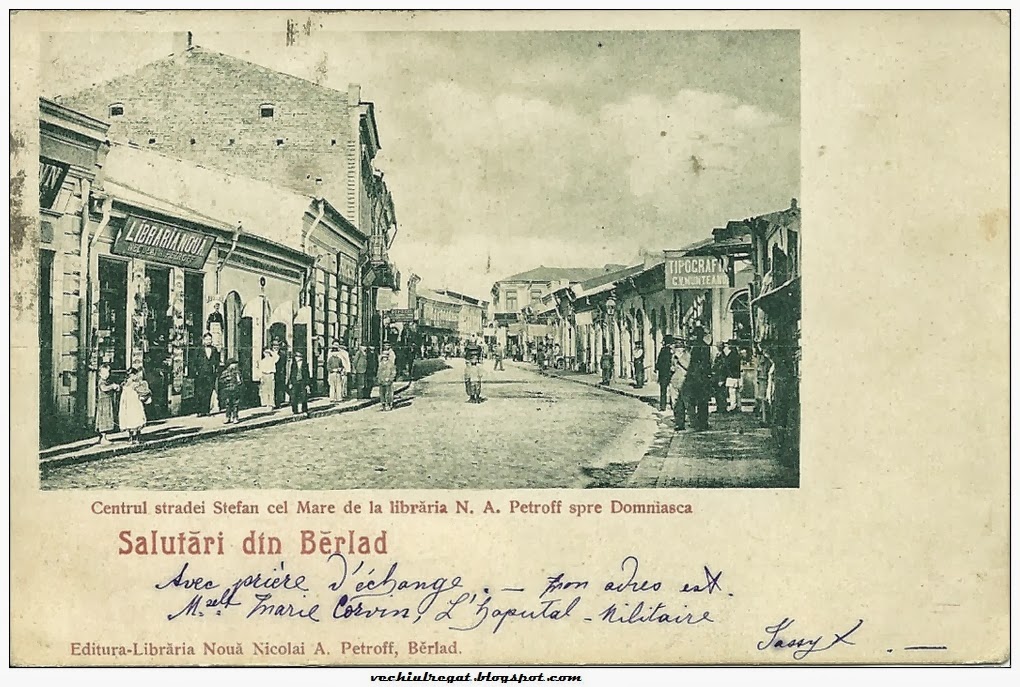 LIBRARIA NOUĂ
TIPOGRAFIA
C. V. MUNTEANU
Centrul stradei Stefan cel Mare de la librăria N. A. Petroff spre Domniasca
Salutări din Bĕrlad
Avec prière d'échange. — mon adres est.
Mselle Marie Corvin, L'hoputal - Militaire
Jassy
Editura-Librăria Nouă Nicolai A. Petroff, Bĕrlad.
vechiulregat.blogspot.com